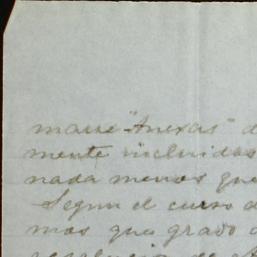 "Anexas" d
mente incluidas
nada menos que
Segun el curso d
mas que grado